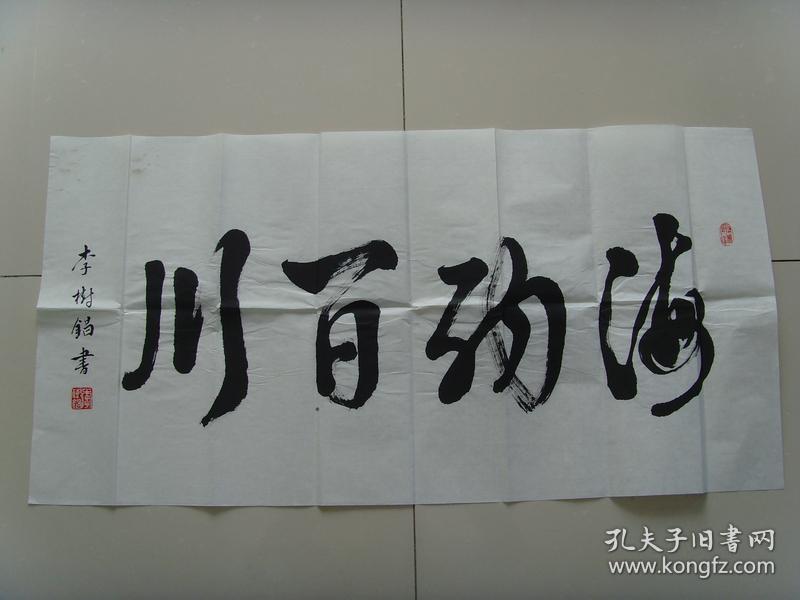 海纳百川
李树锠书
孔夫子旧书网
www.kongfz.com